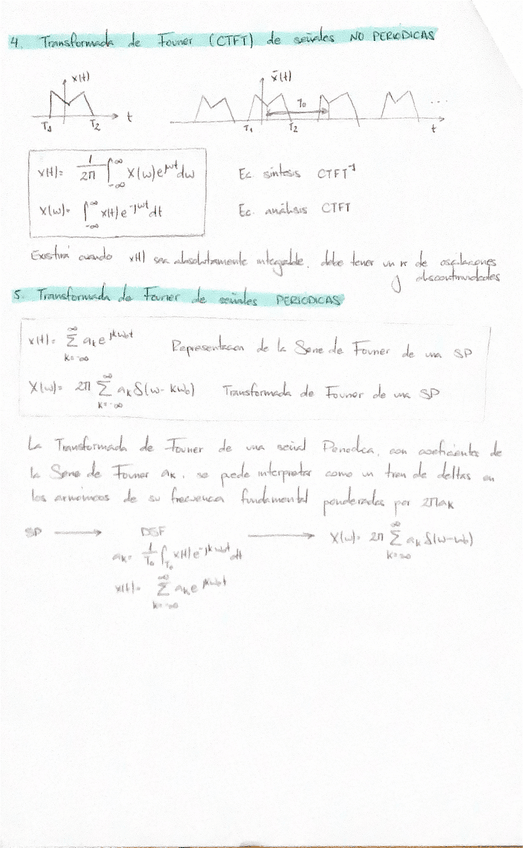 4. Transformada de Fourier (CTFT) de señales NO PERIODICAS
x(t) x̃(t)
T0 ...
T1 T2 t T1 T2 t
x(t)= 1/2π ∫_{-∞}^{∞} X(ω)e^{jωt}dω Ec. síntesis CTFT^{-1}
X(ω)= ∫_{-∞}^{∞} x(t)e^{-jωt}dt Ec. análisis CTFT
Existirá cuando x(t) sea absolutamente integrable, debe tener un nº de oscilaciones
y discontinuidades
5. Transformada de Fourier de señales PERIODICAS
x(t)= ∑_{k=-∞}^{∞} a_k e^{jkω0t} Representacion de la Serie de Fourier de una SP
X(ω)= 2π ∑_{k=-∞}^{∞} a_k δ(ω-kω0) Transformada de Fourier de una SP
La Transformada de Fourier de una señal Periodica, con coeficientes de
la Serie de Fourier a_k, se puede interpretar como un tren de deltas en
los armónicos de su frecuencia fundamental ponderadas por 2πa_k
SP → DSF → X(ω)= 2π ∑_{k=-∞}^{∞} a_k δ(ω-ω0)
a_k= 1/T0 ∫_{T0} x(t)e^{-jkω0t}dt
x(t)= ∑_{k=-∞}^{∞} a_k e^{jkω0t}